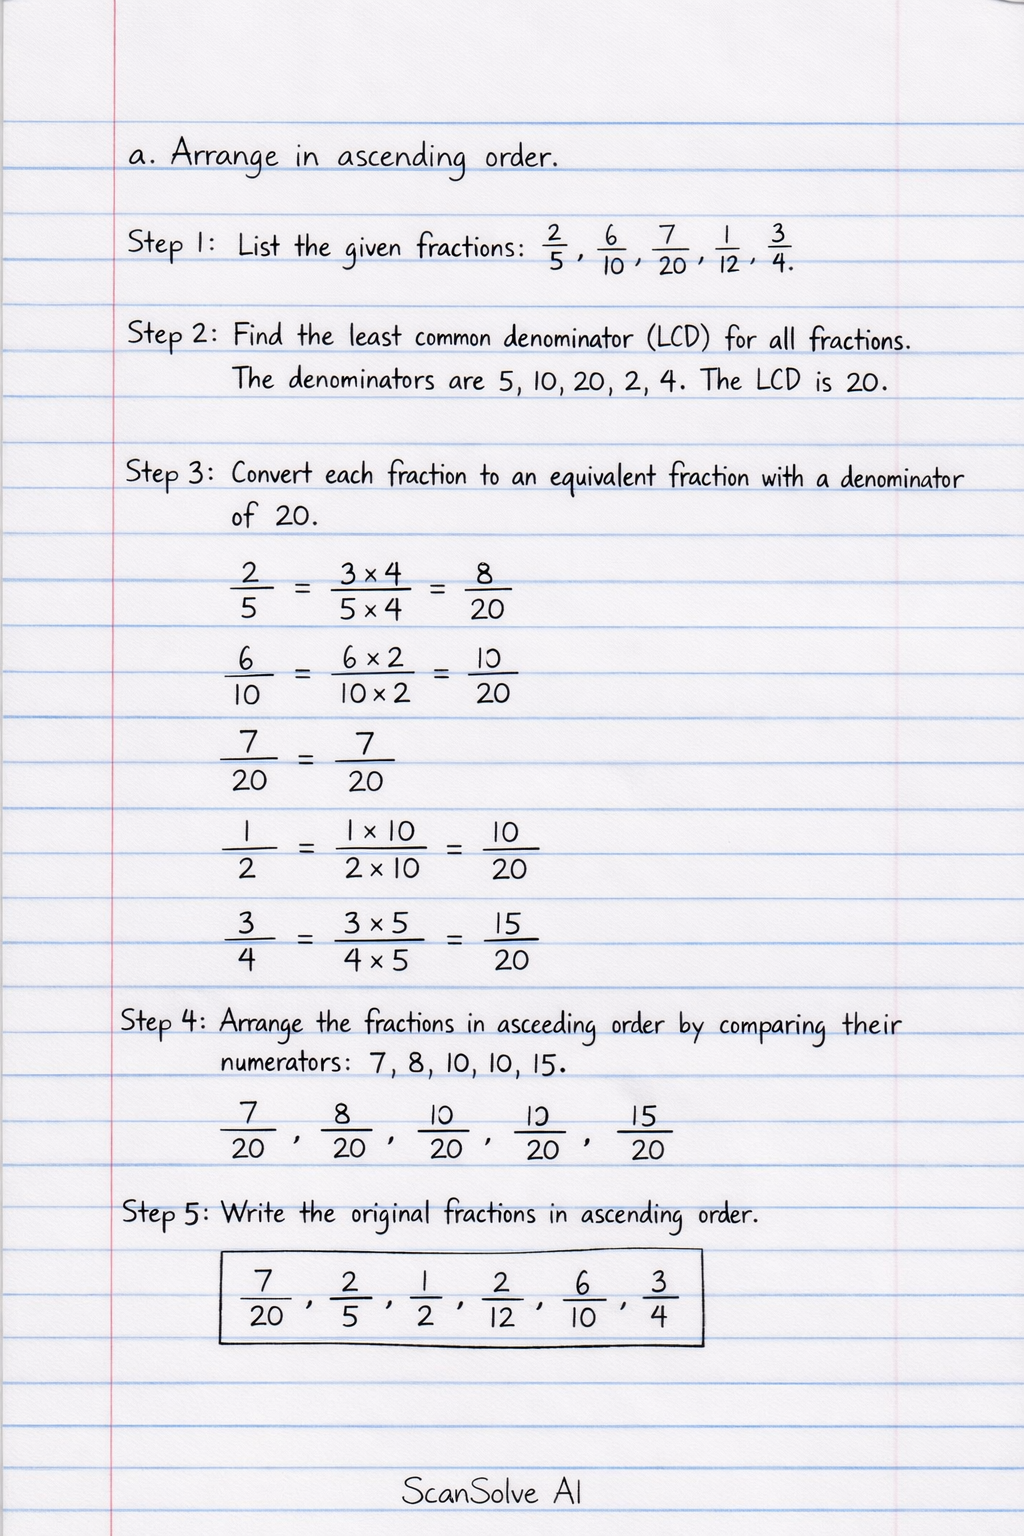 a. Arrange in ascending order.
Step 1: List the given fractions: 2/5, 6/10, 7/20, 1/12, 3/4.
Step 2: Find the least common denominator (LCD) for all fractions.
The denominators are 5, 10, 20, 2, 4. The LCD is 20.
Step 3: Convert each fraction to an equivalent fraction with a denominator
of 20.
2/5 = (3 × 4)/(5 × 4) = 8/20
6/10 = (6 × 2)/(10 × 2) = 10/20
7/20 = 7/20
1/2 = (1 × 10)/(2 × 10) = 10/20
3/4 = (3 × 5)/(4 × 5) = 15/20
Step 4: Arrange the fractions in asceeding order by comparing their
numerators: 7, 8, 10, 10, 15.
7/20, 8/20, 10/20, 10/20, 15/20
Step 5: Write the original fractions in ascending order.
7/20, 2/5, 1/2, 2/12, 6/10, 3/4
ScanSolve AI